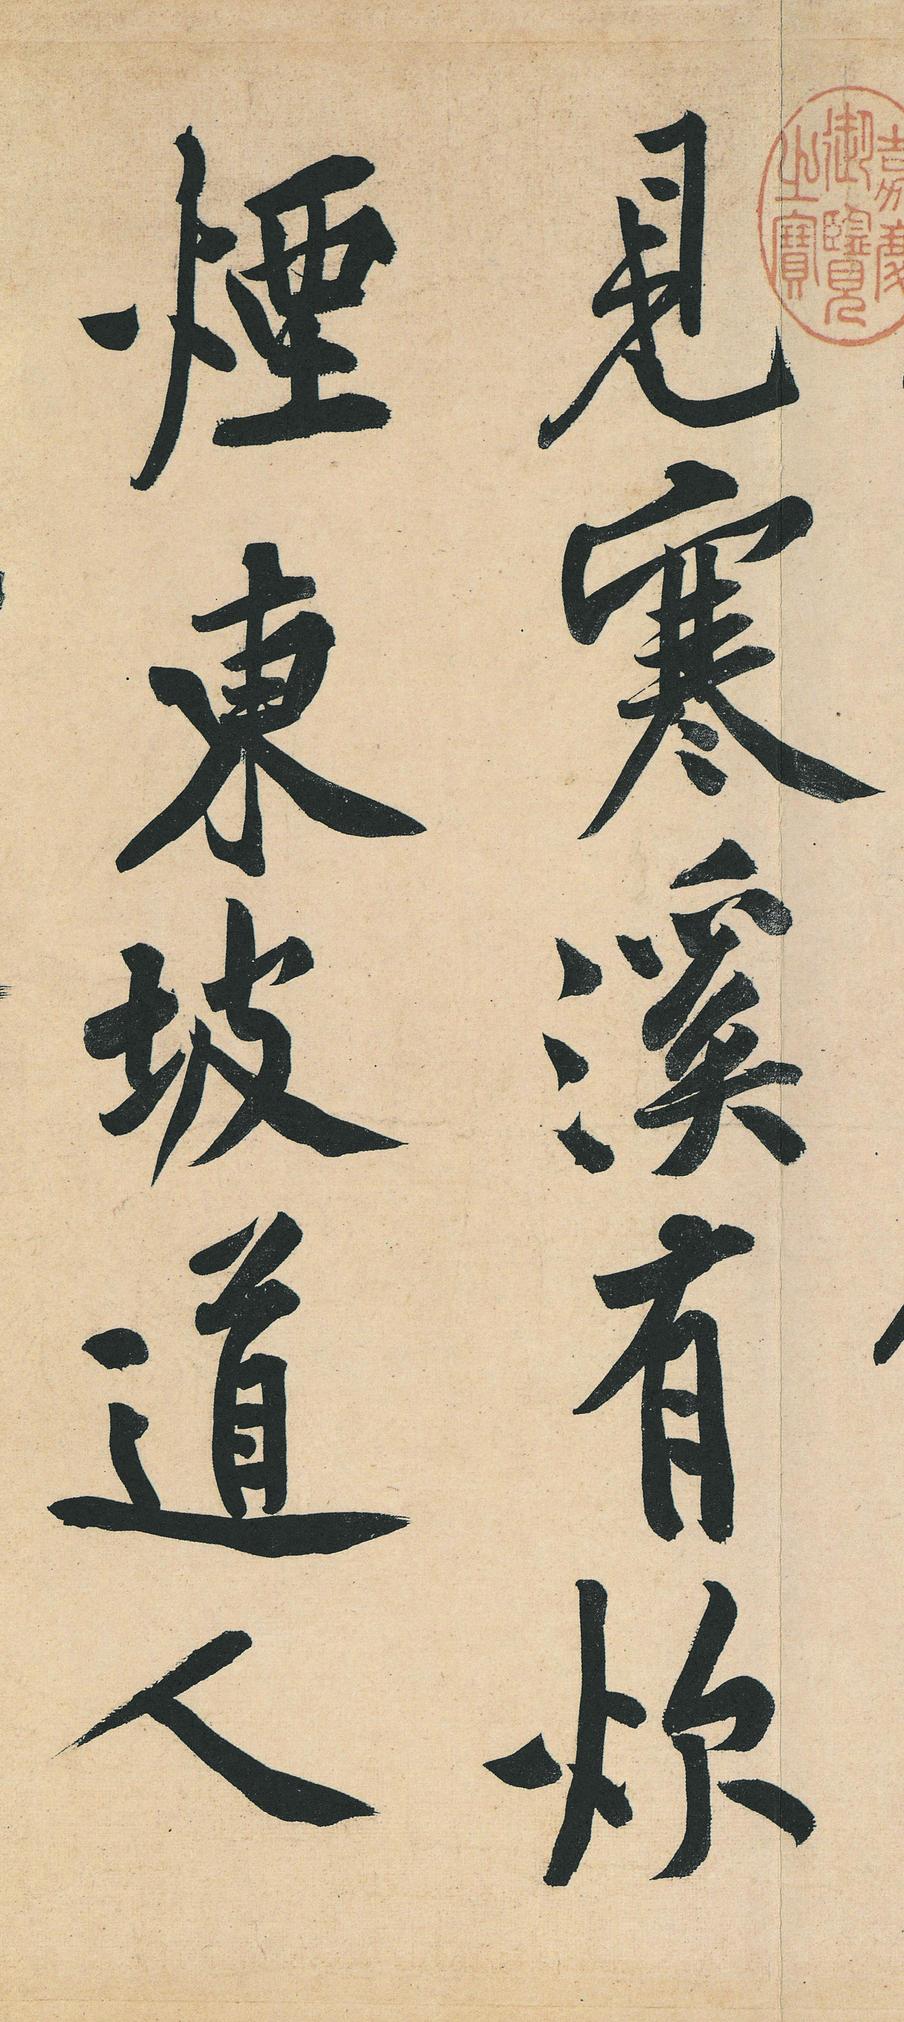 嘉慶
御覽
之寶
見寒溪有炊
煙東坡道人